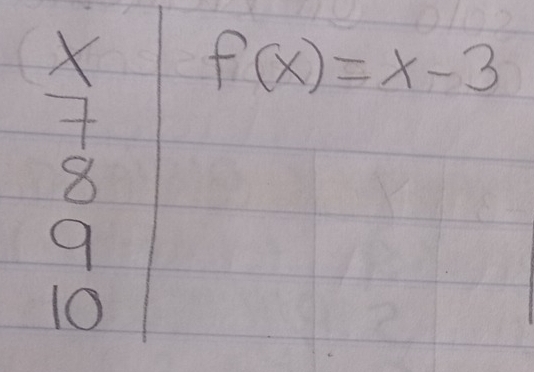 x f(x) = x - 3
7
8
9
10